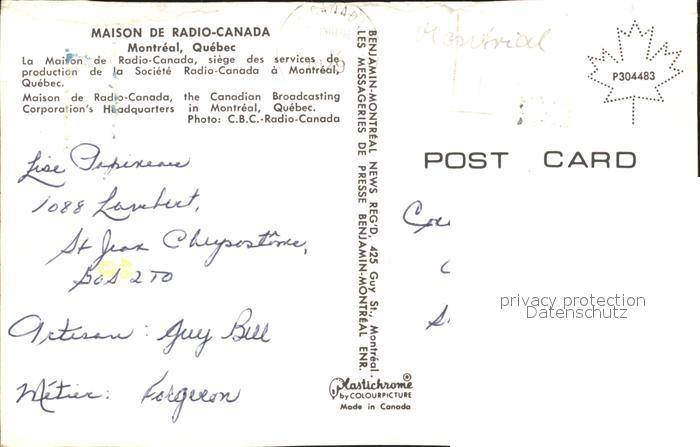 MAISON DE RADIO-CANADA
Montréal, Québec
La Maison de Radio-Canada, siège des services de
production de la Société Radio-Canada à Montréal,
Québec.
Maison de Radio-Canada, the Canadian Broadcasting
Corporation's Headquarters in Montréal, Québec.
Photo: C.B.C.-Radio-Canada
Lise Papineau
1088 Lambert,
St Jean Chrysostôme,
G0S 2T0
Artisan: Guy Bell
Métier: Forgeron
BENJAMIN-MONTRÉAL NEWS REG'D, 425 Guy St., Montréal.
LES MESSAGERIES DE PRESSE BENJAMIN-MONTRÉAL ENR.
Plastichrome®
by COLOURPICTURE
Made in Canada
CANADA
Montréal
P304483
POST CARD
privacy protection
Datenschutz